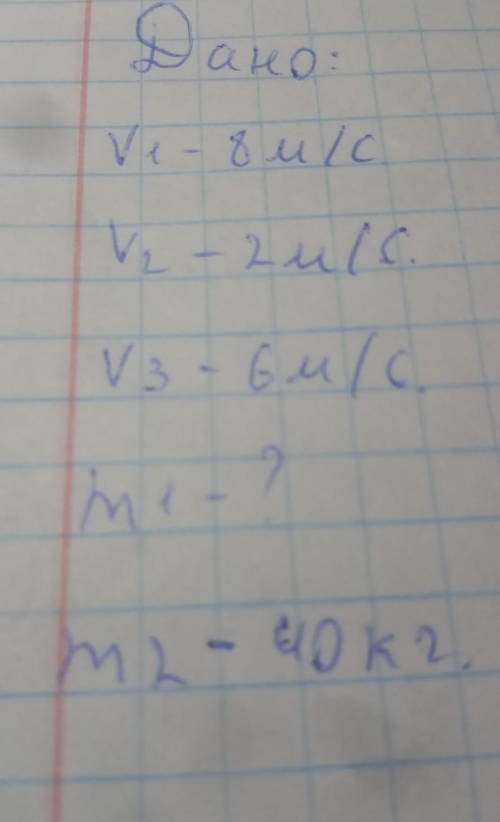 Дано:
V1 - 8 м/с
V2 - 2 м/с.
V3 - 6 м/с.
m1 - ?
m2 - 40 кг.